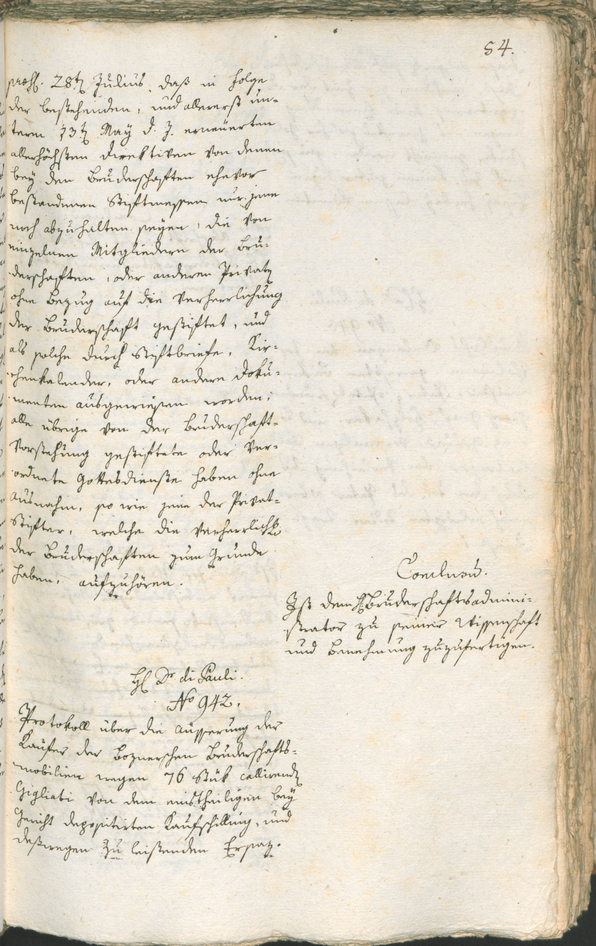 84.
praes. 28t Julius, daß in Folge
der bestehenden, und allererst un-
term 13t May d. J. erneuerten
allerhöchsten Direktiven von denen
bey den Bruderschaften ehevor
bestandenen Stiftmessen nur jene
noch abzuhalten seyen, die von
einzelnen Mitgliedern der Bru-
derschaften, oder anderen Privaten
ohne Bezug auf die Verherrlichung
der Bruderschaft gestiftet, und
als solche durch Stiftbriefe, Kir-
chenkalender, oder andere Doku-
menten ausgewiesen worden;
alle übrige von der Bruderschaft-
Vorstehung gestiftete oder ver-
ordnete Gottesdienste haben ohne
Ausnahm, so wie jene der Privat-
Stifter, welche die Verherrlichg
der Bruderschaften zum Grunde
haben, aufzuhören.
Conclusum.
Ist dem H Bruderschaftsadmini-
strator zu seiner Wissenschaft
und Benehmung zuzufertigen.
H Dr di Pauli.
No 942.
Protokoll über die Äusserung der
Käufer der Boznerschen Bruderschafts-
mobilien wegen 76 Stük
Gigliati von dem bey
Gericht depositirten Kaufschilling, und
deßwegen zu leistenden Ersaz.